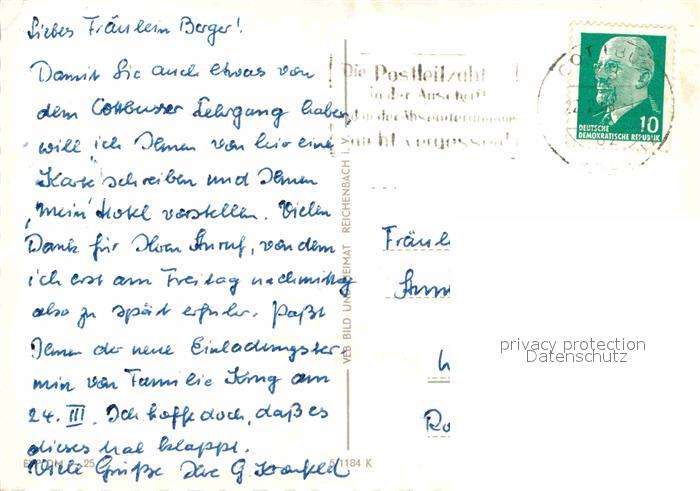 Liebes Fräulein Berger!
Damit Sie auch etwas von
dem Cottbuser Lehrgang haben,
will ich Ihnen von hier eine
Karte schreiben und Ihnen
"mein" Hotel vorstellen. Vielen
Dank für Ihren Anruf, von dem
ich erst am Freitag nachmittag
also zu spät erfuhr. Paßt
Ihnen der neue Einladungster-
min von Familie am
24. III. Ich hoffe doch, daß es
dieses Mal klappt.
Viele Grüße Ihre G.
VEB BILD UND HEIMAT REICHENBACH i. V.
5/1184 K
Die Postleitzahl
in der Anschrift
und in der Absenderangabe
nicht vergessen!
COTTBUS
10
DEUTSCHE
DEMOKRATISCHE REPUBLIK
Fräul
privacy protection
Datenschutz